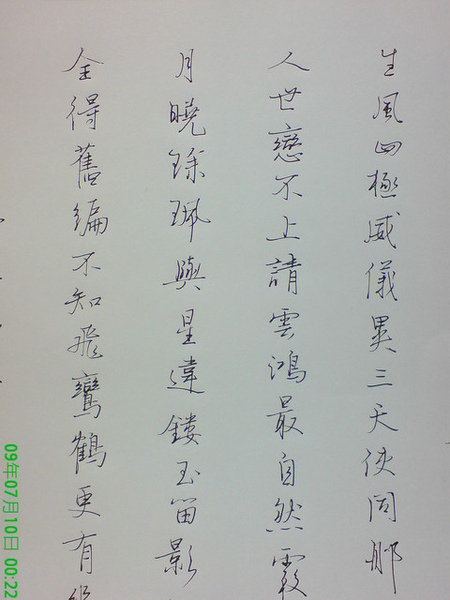 生風四極威儀異三天使同那
人世戀不上請雲鴻最自然霞
月曉珮與星違鏤玉留影
全得舊編不知飛鸞鶴更有
09年07月10日 00:22